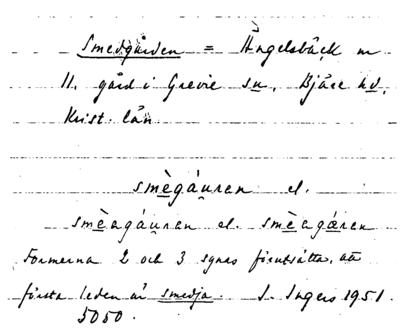 Smedgården = Ängelsbäck nr
11. gård i Grevie sn, Bjäre hd,
Krist. län
smègáu̯ran el.
smèagáu̯ran el. smèagǽran
Formerna 2 och 3 synas förutsätta, att
första leden är smedja. I. Ingers 1951.
5050.